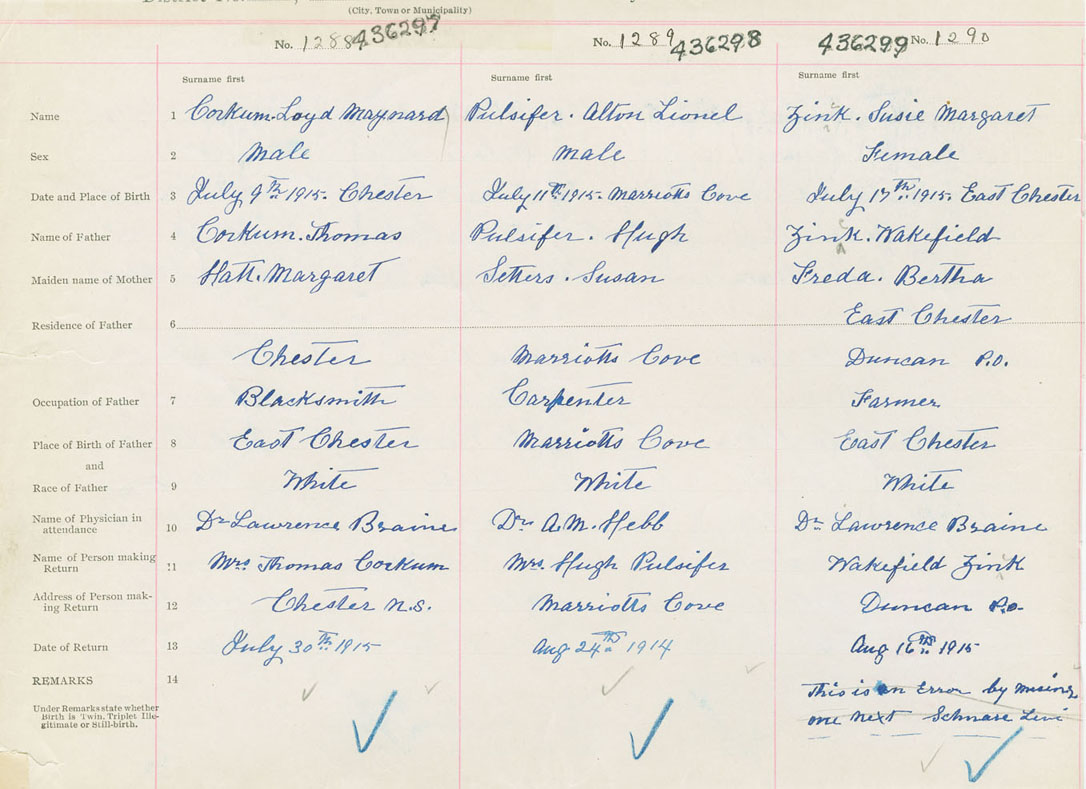 (City, Town or Municipality)
No. 1288 436297 No. 1289 436298 436299 No. 1290
Surname first Surname first Surname first
Name 1 Corkum. Loyd Maynard Pulsifer. Alton Lionel Zink. Susie Margaret
Sex 2 Male Male Female
Date and Place of Birth 3 July 9th 1915. Chester July 11th 1915. Marriotts Cove July 17th 1915. East Chester
Name of Father 4 Corkum. Thomas Pulsifer. Hugh Zink. Wakefield
Maiden name of Mother 5 Hatt. Margaret Setters. Susan Freda. Bertha
East Chester
Residence of Father 6
Chester Marriotts Cove Duncan P.O.
Occupation of Father 7 Blacksmith Carpenter Farmer
Place of Birth of Father 8 East Chester Marriotts Cove East Chester
and
Race of Father 9 White White White
Name of Physician in
attendance 10 Dr Lawrence Braine Dr. A.M. Hebb Dr Lawrence Braine
Name of Person making
Return 11 Mrs Thomas Corkum Mrs Hugh Pulsifer Wakefield Zink
Address of Person mak-
ing Return 12 Chester N.S. Marriotts Cove Duncan P.O.
Date of Return 13 July 30th 1915 Aug 24th 1914 Aug 16th 1915
REMARKS 14
This is an Error by missing
Under Remarks state whether
Birth is Twin, Triplet Ille-
gitimate or Still-birth.
one next Schnare Levi